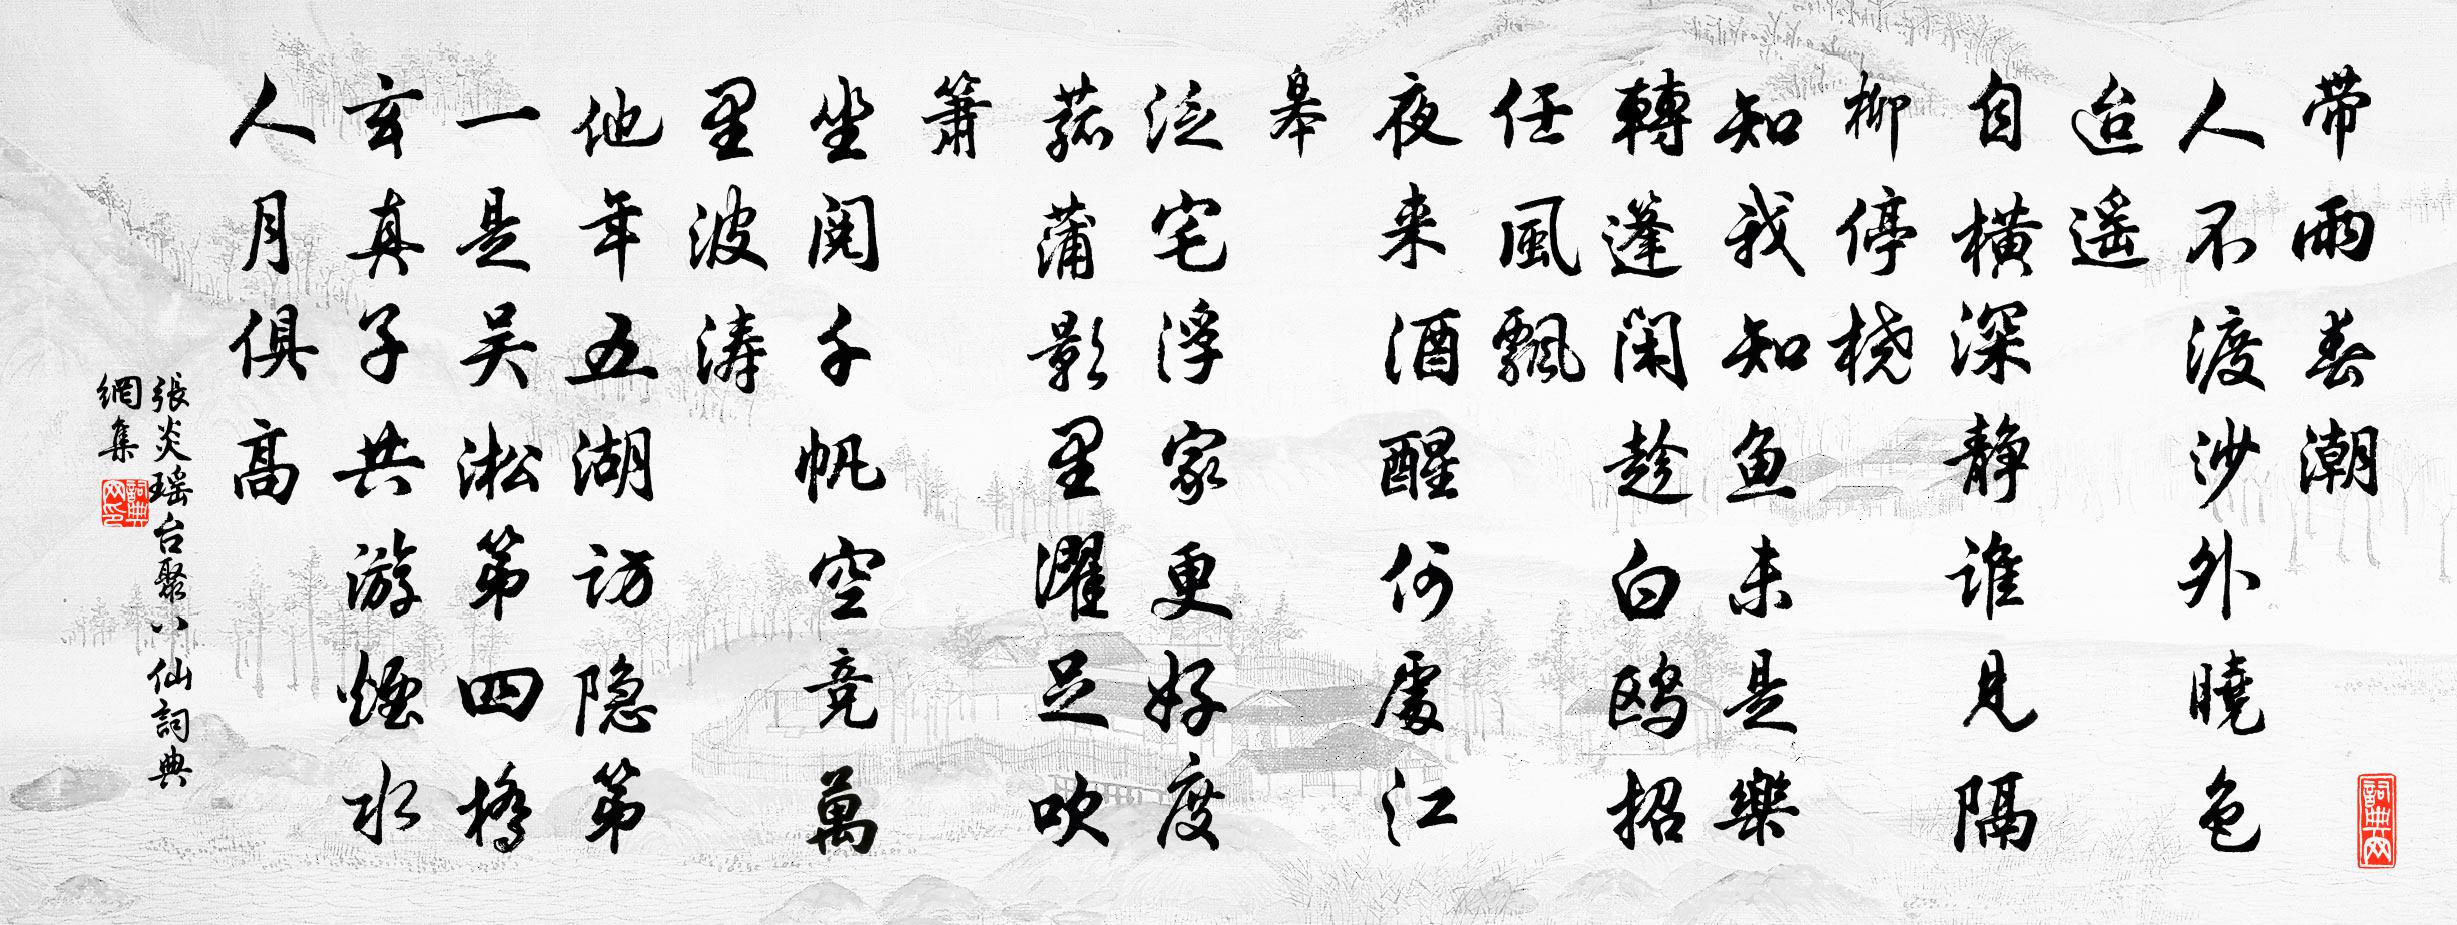 带雨春潮
人不渡沙外曉色
迨遥
自横深静谁見隔
柳停桡
知我知魚未是樂
轉蓬闲趁白鸥招
任風飄
夜来酒醒何處江
皋
泛宅浮家更好度
菰蒲影里濯足吹
箫
坐阅千帆空竞萬
里波涛
他年五湖访隐第
一是吴淞第四橋
玄真子共游煙水
人月俱高
張炎瑶台聚八仙詞典
網集
詞典网
詞典网印